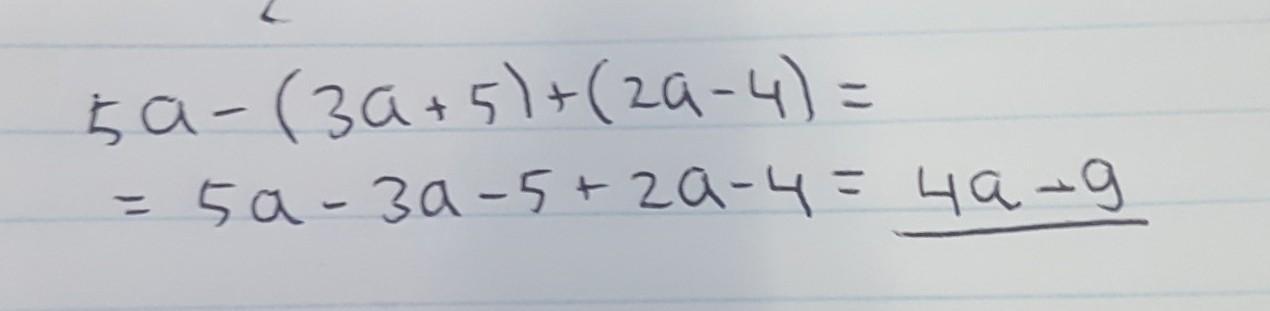 5a - (3a + 5) + (2a - 4) =
= 5a - 3a - 5 + 2a - 4 = 4a - 9